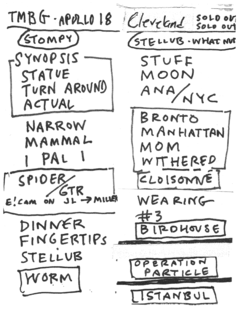 TMBG · APOLLO 18
STOMPY
SYNOPSIS
STATUE
TURN AROUND
ACTUAL
NARROW
MAMMAL
I PAL I
SPIDER/GTR
E! CAM ON JL → MILLER
DINNER
FINGERTIPS
STELLUB
WORM
Cleveland SOLD OUT
SOLD OUT
STELLUB · WHAT NOT
STUFF
MOON
ANA/NYC
BRONTO
MANHATTAN
MOM
WITHERED
CLOISONNE
WEARING
#3
BIRDHOUSE
OPERATION
PARTICLE
ISTANBUL